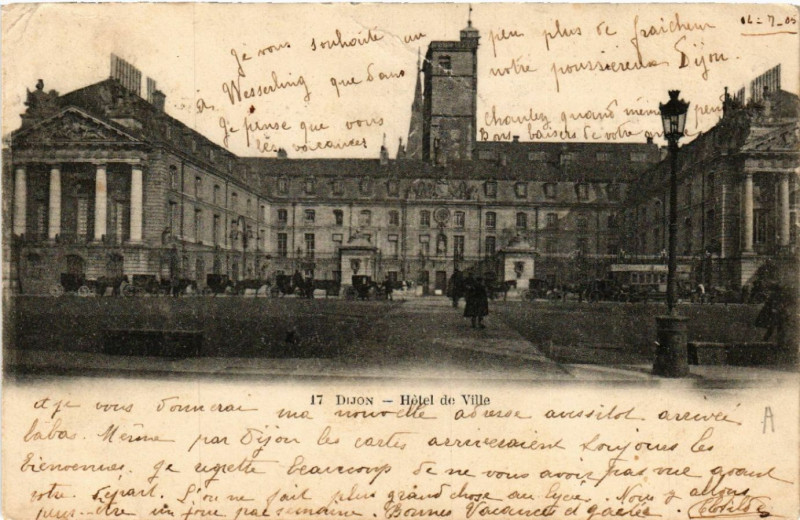 14-7-05
je vous souhaite un peu plus de fraîcheur
à Wesserling que dans notre poussiéreux Dijon.
Je pense que vous chantez quand même
les vacances Bons baisers de votre amie
17 DIJON — Hôtel de Ville
et je vous donnerai ma nouvelle adresse aussitot arrivée
labas. Même par Dijon les cartes arriveraient toujours les
bienvenues. Je regrette beaucoup de ne vous avoir pas vue avant
votre départ. L'on ne fait plus grand chose au lycée. Nous y allons
peut-être un jour par semaine. Bonnes Vacances et gaieté. Clotilde
A